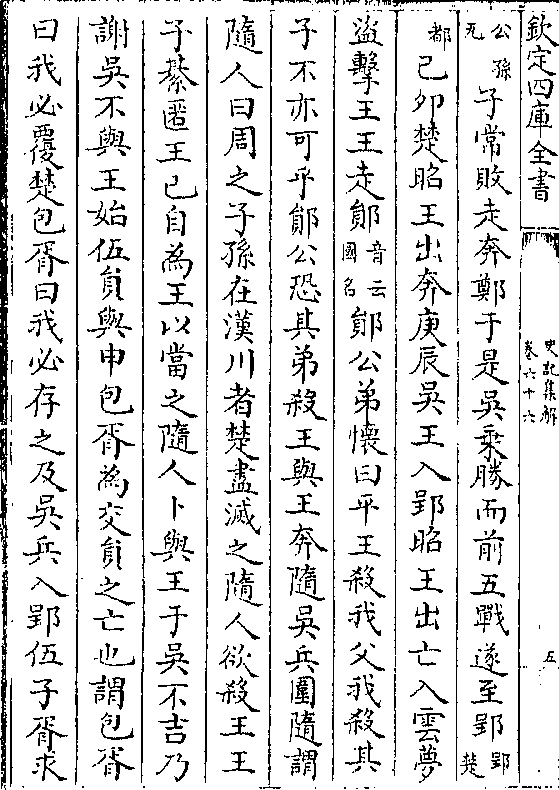 欽定四庫全書
史記集解
卷六十六
五
公孫瓦子常敗走奔鄭于是吳乘勝而前五戰遂至郢郢楚
都己夘楚昭王出奔庚辰吳王入郢昭王出亡入雲夢
盜擊王王走鄖音云國名鄖公弟懷曰平王殺我父我殺其
子不亦可乎鄖公恐其弟殺王與王奔隨吳兵圍隨謂
隨人曰周之子孫在漢川者楚盡滅之隨人欲殺王王
子綦匿王已自為王以當之隨人卜與王于吳不吉乃
謝吳不與王始伍員與申包胥為交員之亡也謂包胥
曰我必覆楚包胥曰我必存之及吳兵入郢伍子胥求